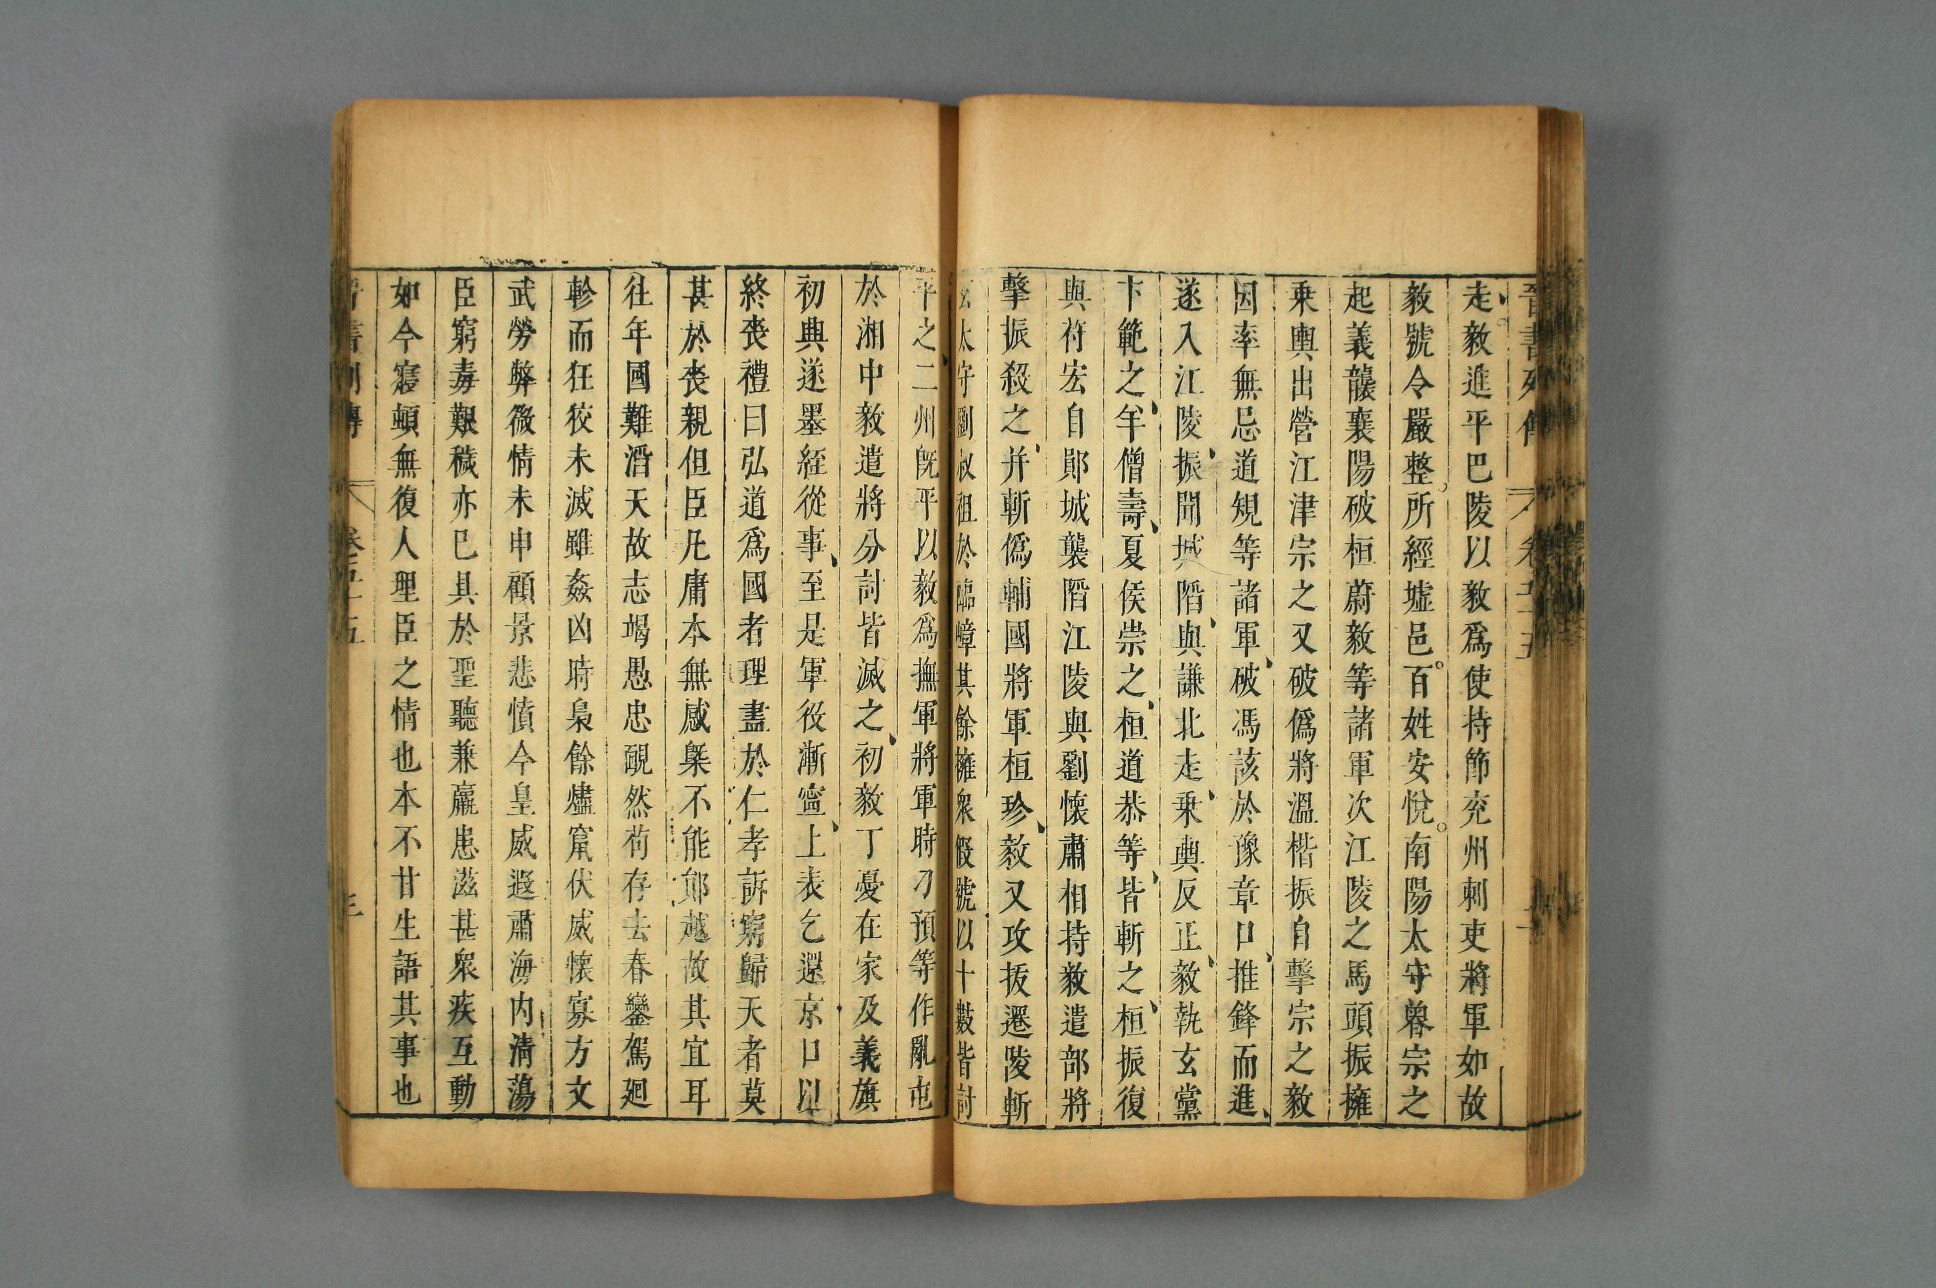 晉書列傳 卷五十五
走毅進平巴陵以毅爲使持節兖州刺史將軍如故
毅號令嚴整所經墟邑百姓安悅南陽太守魯宗之
起義襲襄陽破桓蔚毅等諸軍次江陵之馬頭振擁
乗輿出營江津宗之又破僞將溫楷振自擊宗之毅
因率無忌道規等諸軍破馮該於豫章口推鋒而進
遂入江陵振聞城䧟與謙北走乗輿反正毅執玄黨
卞範之羊僧壽夏侯崇之桓道恭等皆斬之桓振復
與苻宏自鄖城襲䧟江陵與劉懷肅相持毅遣部將
擊振殺之并斬僞輔國將軍桓珍毅又攻拔遷陵斬
玄太守劉叔祖於臨嶂其餘擁衆假號以十數皆討
平之二州旣平以毅爲撫軍將軍時刁預等作亂屯
於湘中毅遣將分討皆滅之初毅丁憂在家及義旗
初興遂墨絰從事至是軍役漸寧上表乞還京口以
終喪禮曰弘道爲國者理盡於仁孝訴窮歸天者莫
甚於喪親但臣凡庸本無感槩不能郎越故其宜耳
往年國難滔天故志竭愚忠靦然苟存去春鑾駕廻
軫而狂狡未滅雖姦凶時梟餘燼竄伏威懷寡方文
武勞弊微情未申顧景悲憤今皇威遐肅海内清蕩
臣窮毒艱穢亦已具於聖聽兼羸患滋甚衆疾互動
如今寢頓無復人理臣之情也本不甘生語其事也
晉書列傳 卷五十五